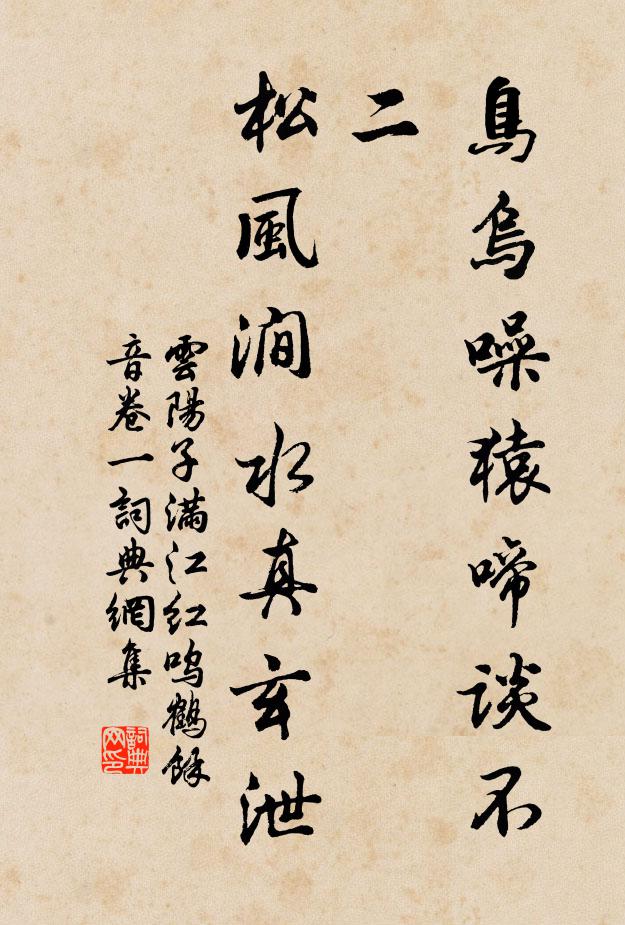 鳥烏噪猿啼談不
二
松風澗水真玄泄
雲陽子滿江红鸣鶴餘
音卷一詞典網集
詞典
网印